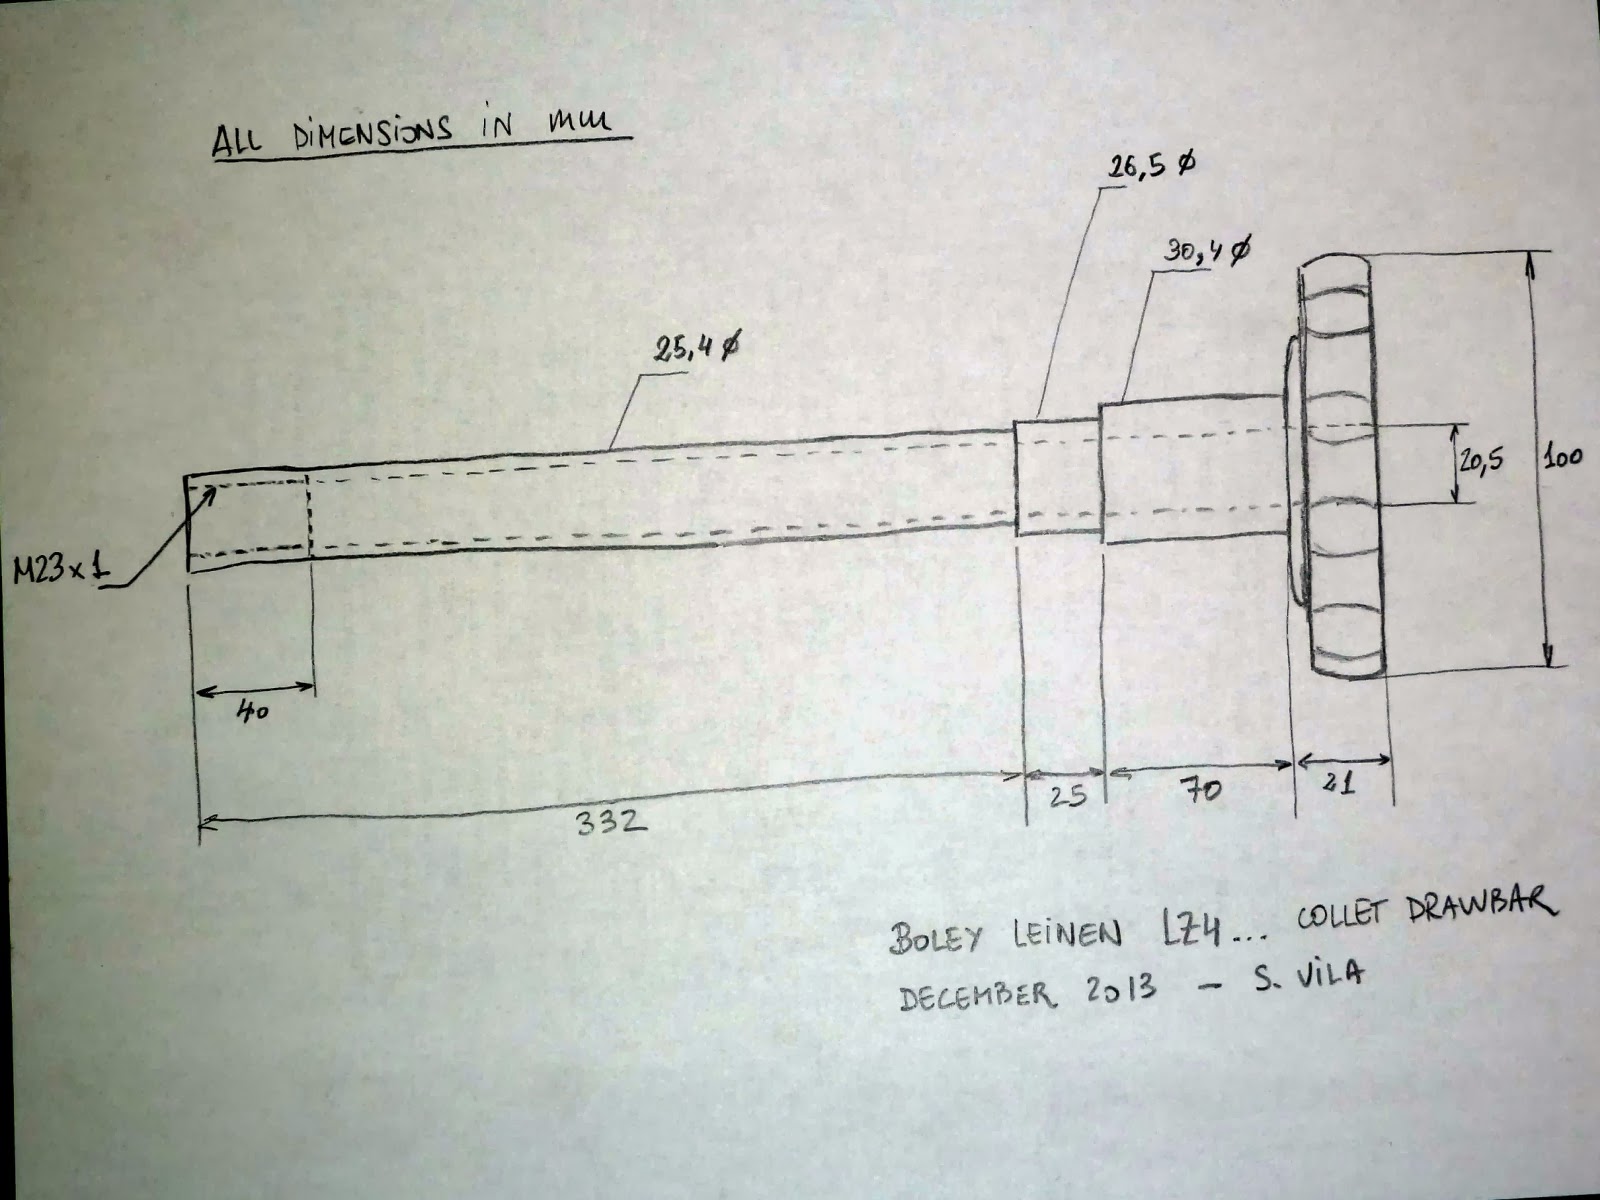 ALL DIMENSIONS IN mm
26,5 ∅
30,4 ∅
25,4 ∅
20,5
100
M23x1
40
332
25
70
21
BOLEY LEINEN LZ4... COLLET DRAWBAR
DECEMBER 2013 - S. VILA